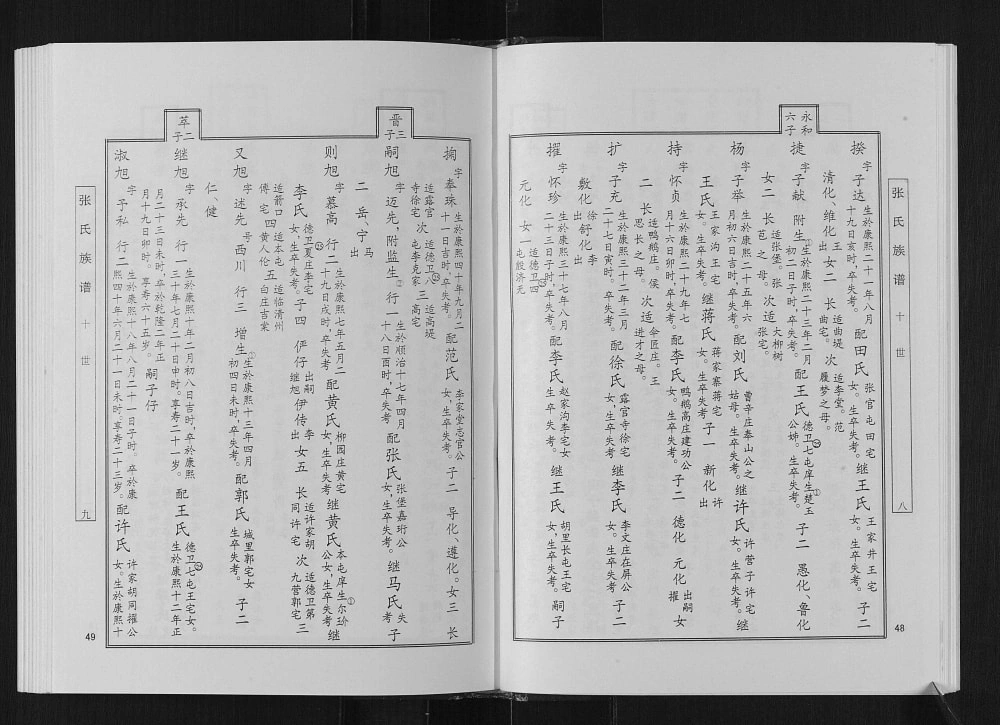 张氏族谱 十世 八
48
永和
六子
揆 字子达 生於康熙二十一年八月十九日亥时,卒失考。 配田氏 张官屯田宅女。生卒失考。 继王氏 王家井王宅女。生卒失考。 子二
清化、维化 出王 女二 长 适曲堤曲宅。 次 适李堂。范履梦之母。
捷 字子献 附生① 生於康熙二十三年二月初二日子时,卒失考。 配王氏 德卫七屯庠生楚玉公姊。生卒失考。 子二 愚化、鲁化
女二 长 适张堡。张范之母。 次 适大柳树张宅。
杨 字子举 生於康熙二十五年六月初六日吉时,卒失考。 配刘氏 曹辛庄奉山公之姑母。生卒失考。 继许氏 许营子许宅女。生卒失考。 继
王氏 王家沟王宅女。生卒失考。 继蒋氏 蒋家寨蒋宅女。生卒失考。 子一 新化 出许
持 字怀贞 生於康熙二十九年七月十六日卯时,卒失考。 配李氏 鸭鹅高庄建功公女。生卒失考。 子二 德化 元化 出嗣擢 女
二 长 适鸭鹅庄。侯思长之母。 次 适伞匠庄。王进才之母。
扩 字子充 生於康熙三十二年三月二十七日寅时,卒失考。 配徐氏 露官寺徐宅女。生卒失考。 继李氏 李文庄在屏公女。生卒失考。 子二
敷化 出徐 舒化 出李
擢 字怀珍 生於康熙三十七年八月二十三日子时,卒失考。 配李氏 赵家沟李宅女。生卒失考。 继王氏 胡里长屯王宅女。生卒失考。 嗣子
元化 女一 适德卫四屯殷济元
掬 字奉珠 生於康熙四十年九月二十一日吉时,卒失考。 配范氏 李家堂志官公女,生卒失考。 子二 导化、遵化。女三 长
适露官寺徐宅 次 适德卫八屯李克家 三 适高堤高宅
晋三
子
嗣旭 字迈先,附监生② 行一 生於顺治十七年四月十八日酉时,卒失考 配张氏 张堡嘉珩公女,生卒失考。 继马氏 失考 子
二 岳、宁 出马
则旭 字慕高 行二 生於康熙七年五月二十九日戌时,卒失考。 配黄氏 柳园庄黄宅女,生卒失考。 继黄氏 本屯庠生尔玠公女,生卒失考 继
李氏 德卫夏庄李宅女,生卒失考。 子四 伊仔 出嗣继旭 伊传 出李 女五 长 适许家胡同许宅 次 适德卫第九营郭宅 三
适箭口傅宅 四 适本屯黄人伦 五 适临清州白庄吉棠
又旭 字述先 号西川 行三 增生① 生於康熙十三年四月初四日未时,卒失考。 配郭氏 城里郭宅女生卒失考。 子二
仁、健
萃二
子
继旭 字承先 行一 生於康熙十年二月初八日吉时,卒於康熙三十年七月二十日申时。享寿二十一岁。 配王氏 德卫七屯王宅女。生於康熙十二年正
月二十三日未时,卒於乾隆二年正月十九日卯时。享寿六十五岁。 嗣子仔
淑旭 字予私 行二 生於康熙十八年八月二十一日子时。卒於康熙四十年六月二十一日未时。享寿二十三岁。 配许氏 许家胡同擢公女。生於康熙十
张氏族谱 十世 九
49